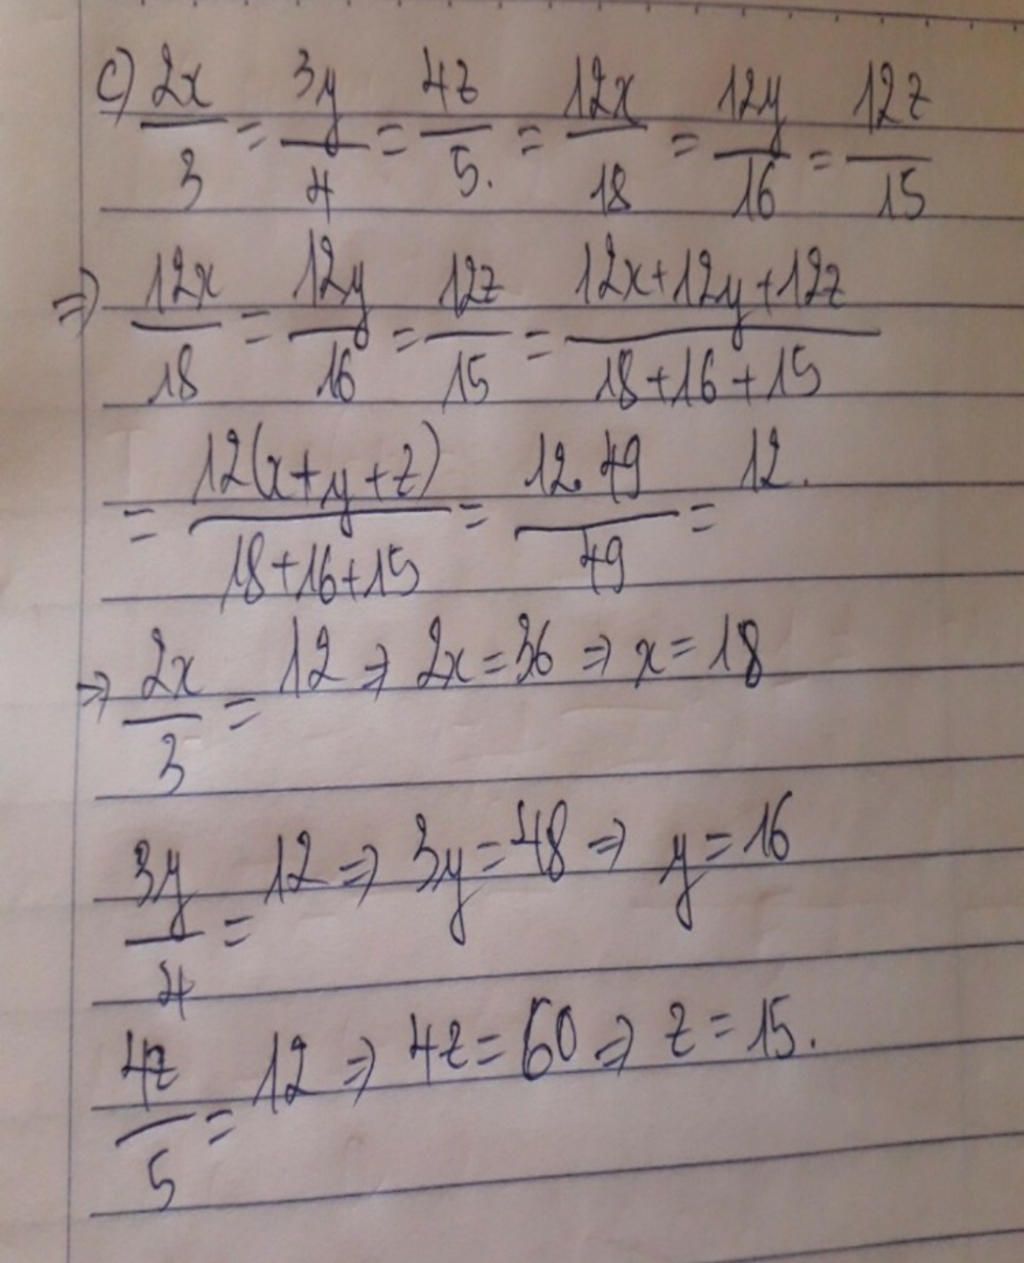 c) 2x/3 = 3y/4 = 4z/5. = 12x/18 = 12y/16 = 12z/15
=> 12x/18 = 12y/16 = 12z/15 = 12x+12y+12z/18+16+15
= 12(x+y+z)/18+16+15 = 12.49/49 = 12.
=> 2x/3 = 12 => 2x = 36 => x = 18
3y/4 = 12 => 3y = 48 => y = 16
4z/5 = 12 => 4z = 60 => z = 15.